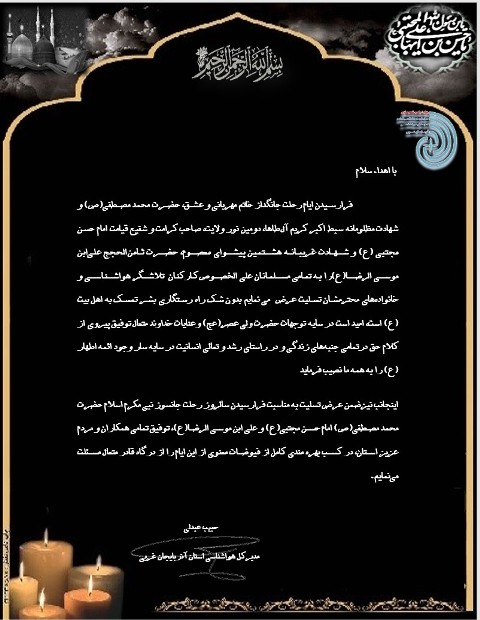 بسم الله الرحمن الرحیم
با اهداء سلام
فرارسیدن ایام رحلت جانگداز خاتم مهربانی و عشق، حضرت محمد مصطفی(ص) و
شهادت مظلومانه سبط اکبر کریم آل‌طاها، دومین نور ولایت، صاحب کرامت و شفیع قیامت امام حسن
مجتبی (ع) و شهادت غریبانه هشتمین پیشوای معصوم، حضرت ثامن‌الحجج علی‌ابن
موسی الرضا(ع)را به تمامی مسلمانان علی الخصوص کارکنان تلاشگر هواشناسی و
خانواده‌های محترمشان تسلیت عرض می نمایم بدون شک راه رستگاری بشر تمسک به اهل بیت
(ع) است. امید است در سایه توجهات حضرت ولی عصر(عج) و عنایات خداوند متعال توفیق پیروی از
کلام حق در تمامی جنبه‌های زندگی و در راستای رشد و تعالی انسانیت در سایه سار وجود ائمه اطهار
(ع) را به همه ما نصیب فرماید
اینجانب نیز ضمن عرض تسلیت به مناسبت فرارسیدن سالروز رحلت جانسوز نبی مکرم اسلام حضرت
محمد مصطفی(ص) امام حسن مجتبی(ع) و علی ابن موسی الرضا(ع)، توفیق تمامی همکاران و مردم
عزیز استان، در کسب بهره مندی کامل از فیوضات معنوی از این ایام را از درگاه قادر متعال مسئلت
می‌نمایم.
حبیب عبدلی
مدیر کل هواشناسی استان آذربایجان غربی